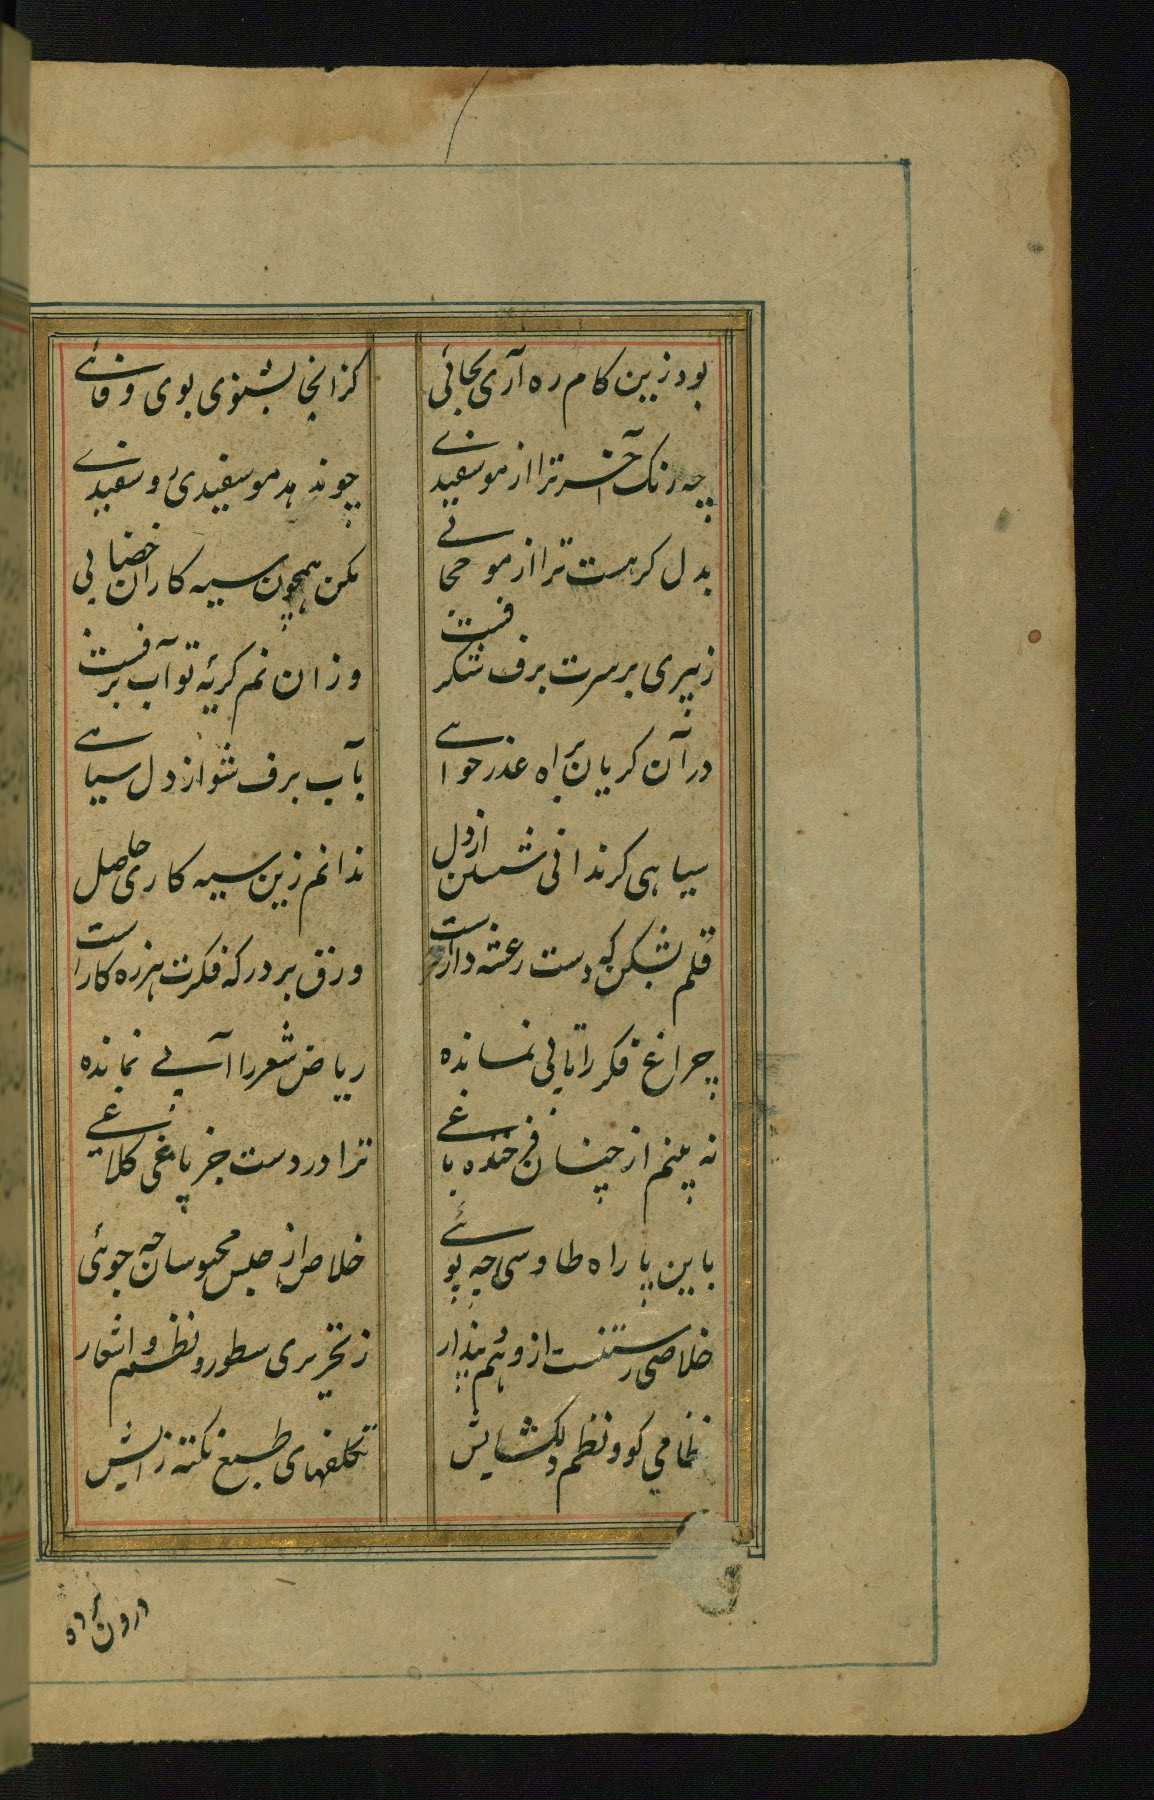 بود زین کام ره آری بجائی
کزانجا بشنوی بوی وفائے
چه رنک آخر ترا از مو سفیدے
چو ندهد مو سفیدی رو سفیدے
بدل کر هست ترا از مو حجابے
مکن همچون سیه کاران خضابی
ز پیری بر سرت برف شکرفست
وزان نم کریۀ تو آب برفست
در آن کریان براه عذر خواهے
بآب برف شو از دل سیاهے
سیاهی کر ندانی شستن از دل
ندانم زین سیه کاری چه حاصل
قلم بشکن که دست رعشه دارست
ورق بر در که فکرت هرزه کارست
چراغ فکر را تابی نمانده
ریاض شعر را آبے نمانده
نه بینم از چنان فرخنده باغے
ترا در دست جز پای کلاغے
باین پا راه طاوسی چه پوئے
خلاص از حبس محبوسان چه جوئی
خلاصی رستنست از وهم و پندار
ز تحریری سطور و نظم و اشعار
نظامی کو و نظم دلکشایش
تکلفهای طبع نکته زایش
درون پرده